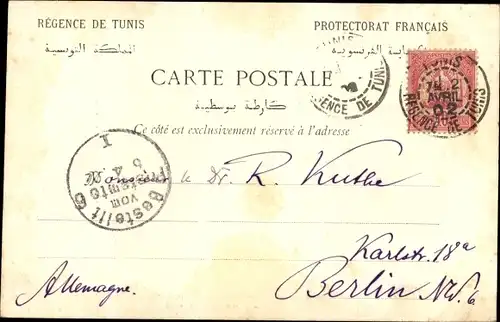 RÉGENCE DE TUNIS
PROTECTORAT FRANÇAIS
المملكة التونسية
الحماية الفرنسوية
CARTE POSTALE
كارطة بوسطية
Ce côté est exclusivement réservé à l'adresse
TUNIS
RÉGENCE DE TUNIS
TUNIS
2
AVRIL
02
RÉGENCE DE TUNIS
Bestellt
vom
Postamte 6
I
Monsieur le Dr. R. Kuthe
Karlstr. 18a
Berlin NW. 6
Allemagne.